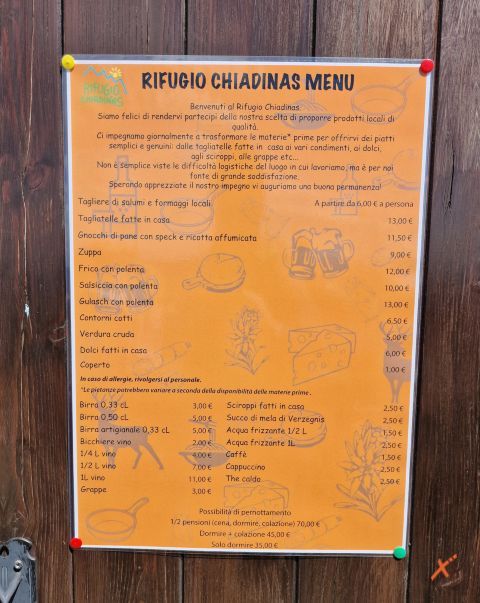 RIFUGIO CHIADINAS
RIFUGIO CHIADINAS MENU
Benvenuti al Rifugio Chiadinas
Siamo felici di rendervi partecipi della nostra scelta di proporre prodotti locali di
qualità.
Ci impegnamo giornalmente a trasformare le materie* prime per offrirvi dei piatti
semplici e genuini: dalle tagliatelle fatte in casa ai vari condimenti, ai dolci,
agli sciroppi, alle grappe etc...
Non è semplice viste le difficoltà logistiche del luogo in cui lavoriamo, ma è per noi
fonte di grande soddisfazione.
Sperando apprezziate il nostro impegno vi auguriamo una buona permanenza!
Tagliere di salumi e formaggi locali A partire da 6,00 € a persona
Tagliatelle fatte in casa 13,00 €
Gnocchi di pane con speck e ricotta affumicata 11,50 €
Zuppa 9,00 €
Frico con polenta 12,00 €
Salsiccia con polenta 10,00 €
Gulasch con polenta 13,00 €
Contorni cotti 6,50 €
Verdura cruda 5,00 €
Dolci fatti in casa 6,00 €
Coperto 1,00 €
In caso di allergie, rivolgersi al personale.
*Le pietanze potrebbero variare a seconda della disponibilità delle materie prime .
Birra 0,33 cL 3,00 € Sciroppi fatti in casa 2,50 €
Birra 0,50 cL 5,00 € Succo di mela di Verzegnis 2,50 €
Birra artigianale 0,33 cL 5,00 € Acqua frizzante 1/2 L 1,50 €
Bicchiere vino 2,00 € Acqua frizzante 1L 2,50 €
1/4 L vino 4,00 € Caffè 1,50 €
1/2 L vino 7,00 € Cappuccino 2,50 €
1L vino 11,00 € The caldo 2,50 €
Grappe 3,00 €
Possibilità di pernottamento
1/2 pensioni (cena, dormire, colazione) 70,00 €
Dormire + colazione 45,00 €
Solo dormire 35,00 €